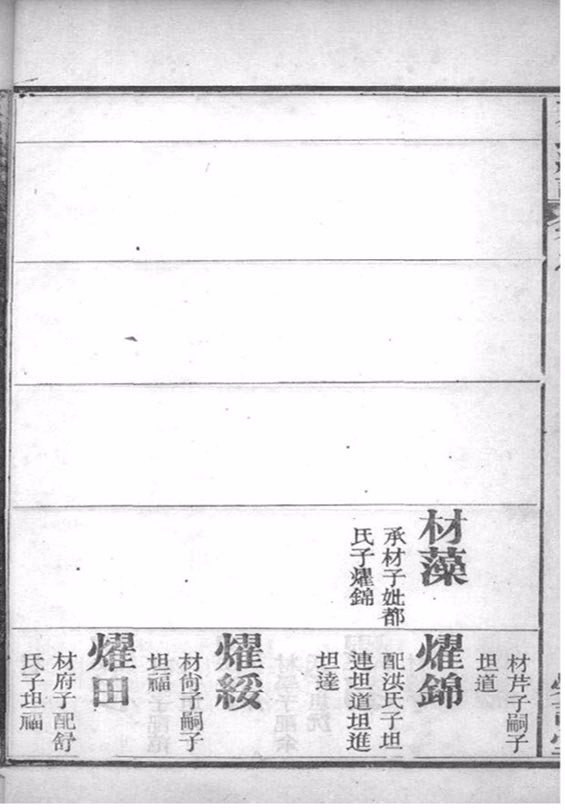 材藻
承材子妣都
氏子燿錦
材芹子嗣子
坦道
燿錦
配洪氏子坦
連坦道坦進
坦達
燿綏
材尙子嗣子
坦福
燿田
材府子配舒
氏子坦福